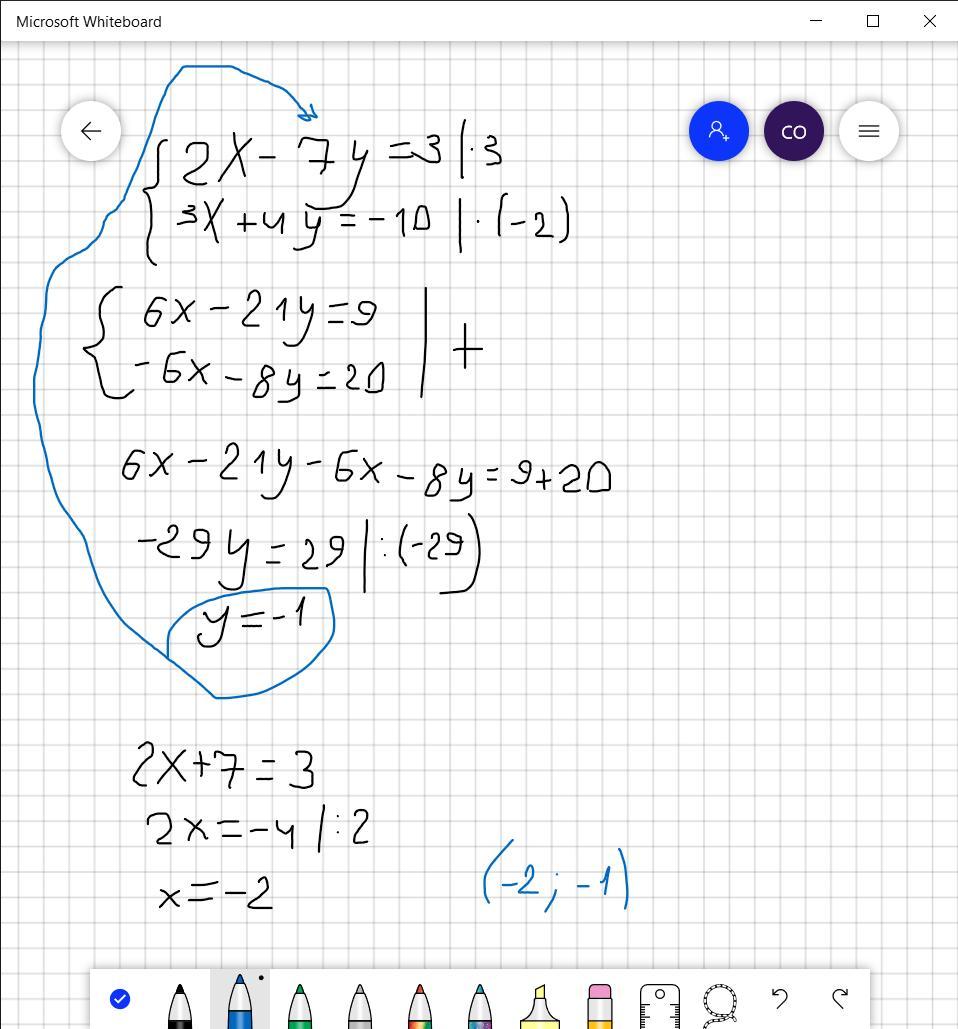 Microsoft Whiteboard
CO
2x - 7y = 3 | · 3
3x + 4y = -10 | · (-2)
6x - 21y = 9
-6x - 8y = 20 | +
6x - 21y - 6x - 8y = 9 + 20
-29y = 29 | : (-29)
y = -1
2x + 7 = 3
2x = -4 | : 2
x = -2
(-2; -1)